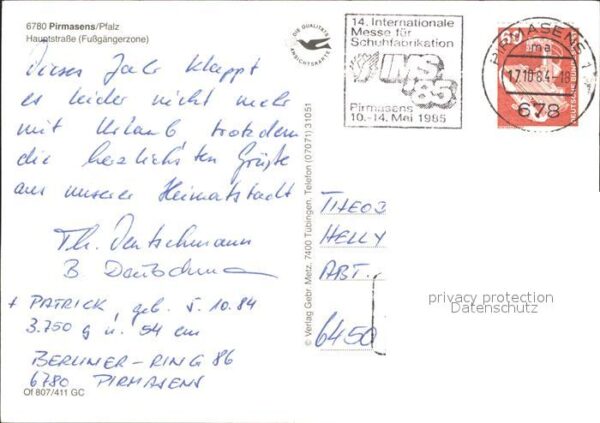 6780 Pirmasens/Pfalz
Hauptstraße (Fußgängerzone)
DIE QUALITÄTS
ANSICHTSKARTE
14. Internationale
Messe für
Schuhfabrikation
IMS
'85
Pirmasens
10.-14. Mai 1985
PIRMASENS 1
ma
17.10.84-18
678
60
DEUTSCHE BUNDESPOST
Dieses Jahr klappt
es leider nicht mehr
mit Urlaub trotzdem
die herzlichsten Grüße
aus unserer Heimatstadt
Th. Deutschmann
B. Deutschmann
+ PATRICK, geb. 5.10.84
3.750 g u. 54 cm
BERLINER-RING 86
6780 PIRMASENS
Of 807/411 GC
© Verlag Gebr. Metz, 7400 Tübingen, Telefon (07071) 31051
THEO
HELLY
ABT.
6450
privacy protection
Datenschutz